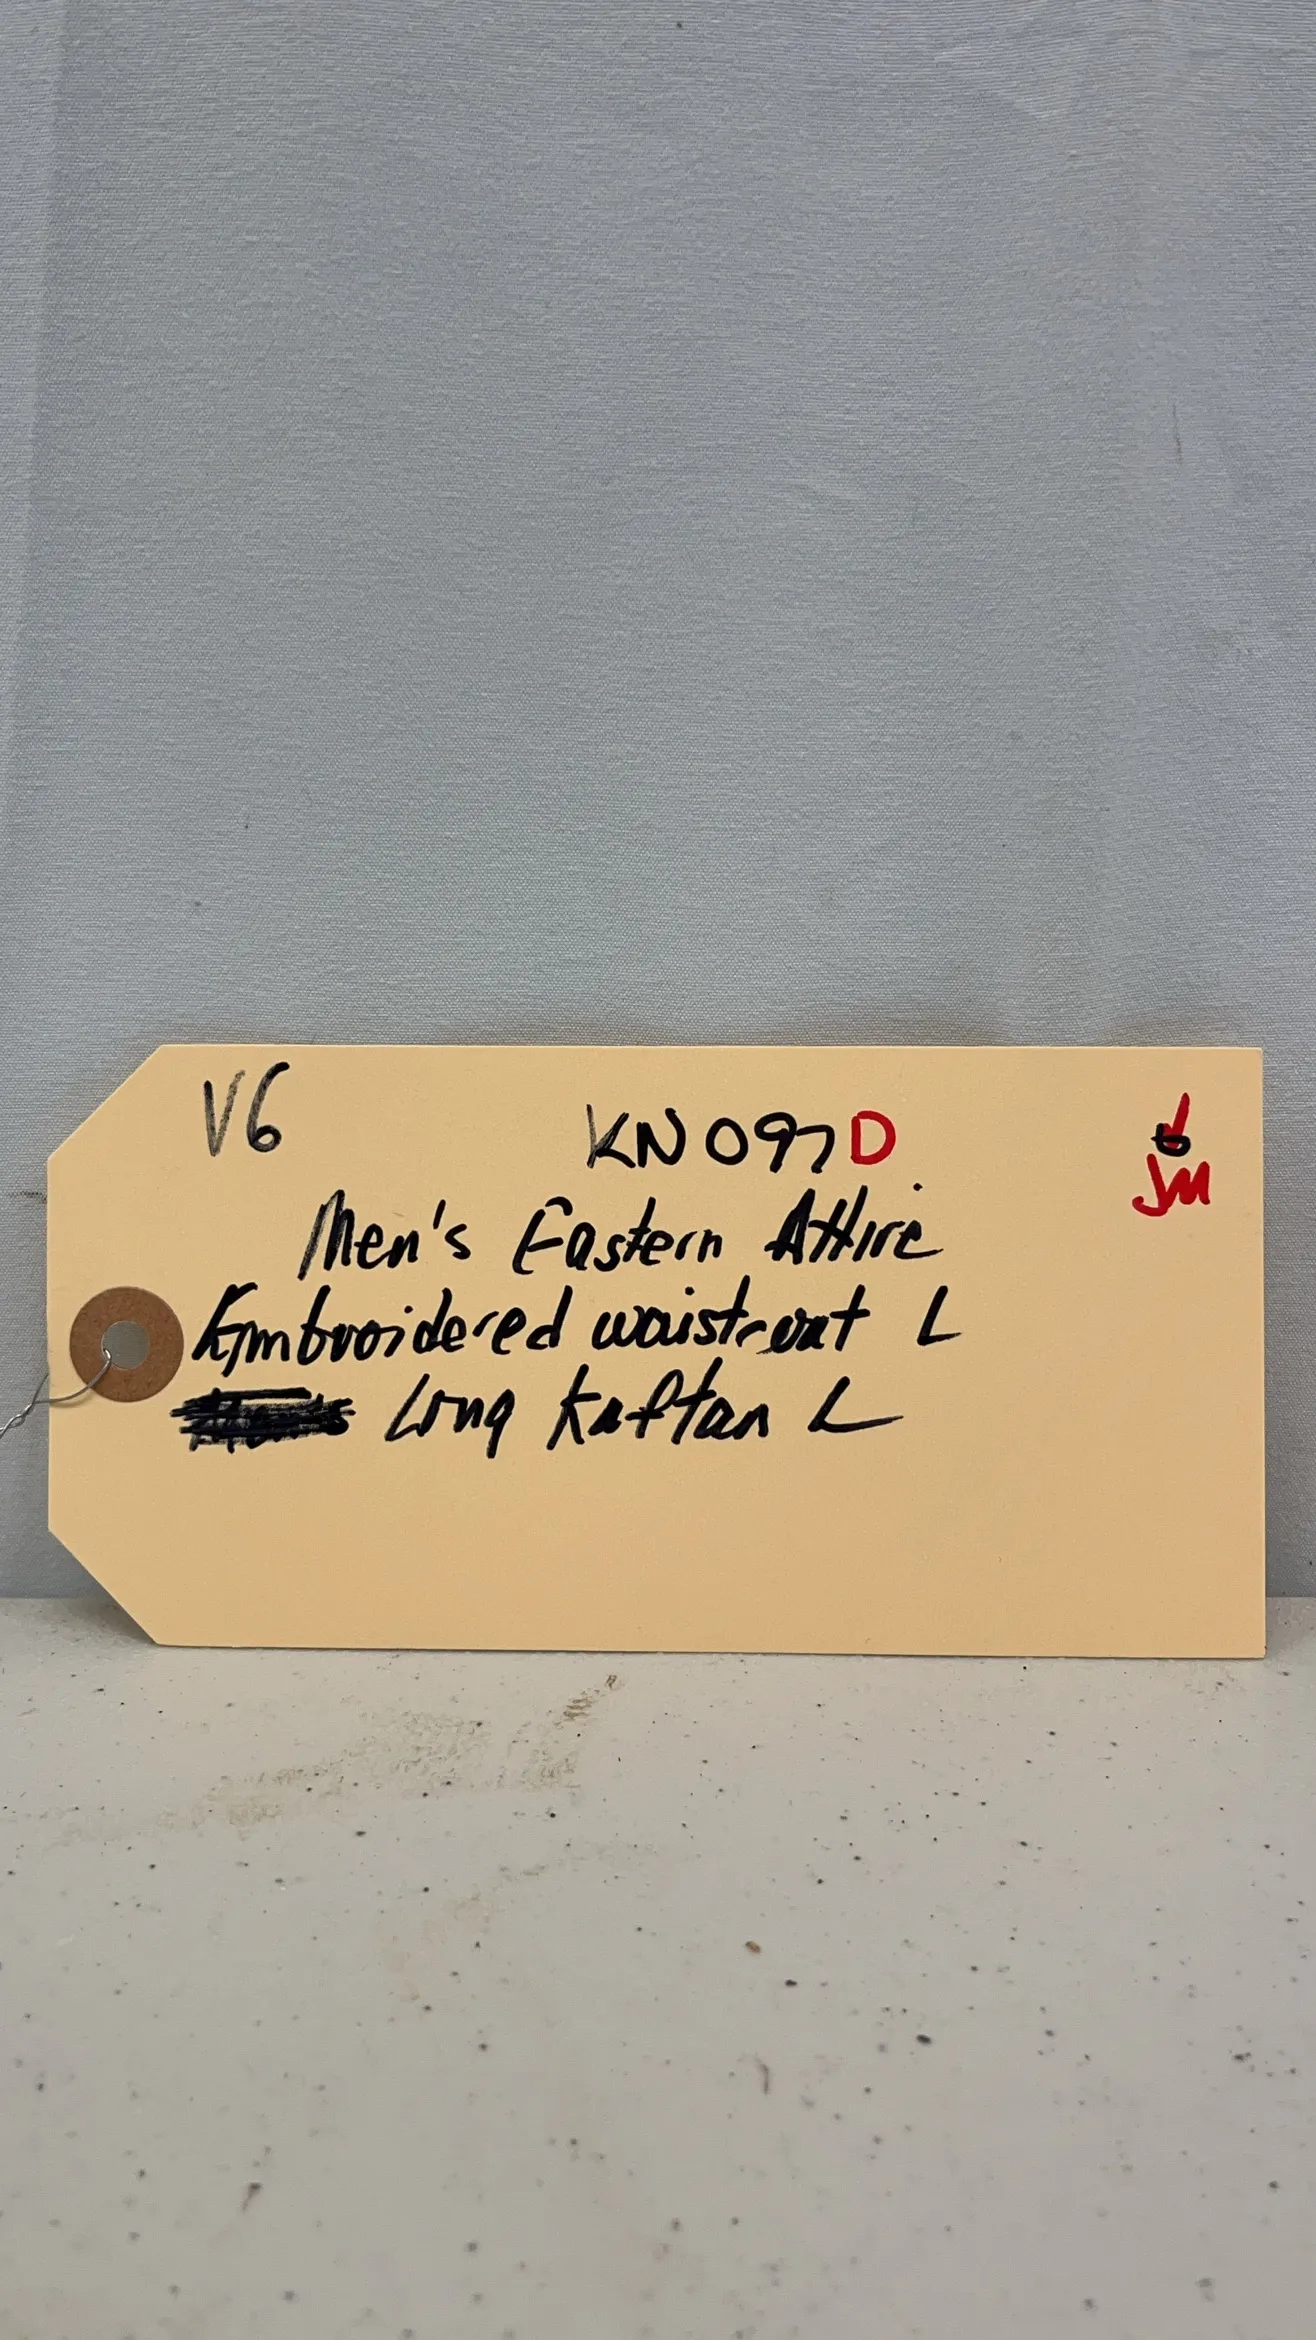 V6 KN097D
JM
Men's Eastern Attire
Embroidered waistcoat L
Long Kaftan L